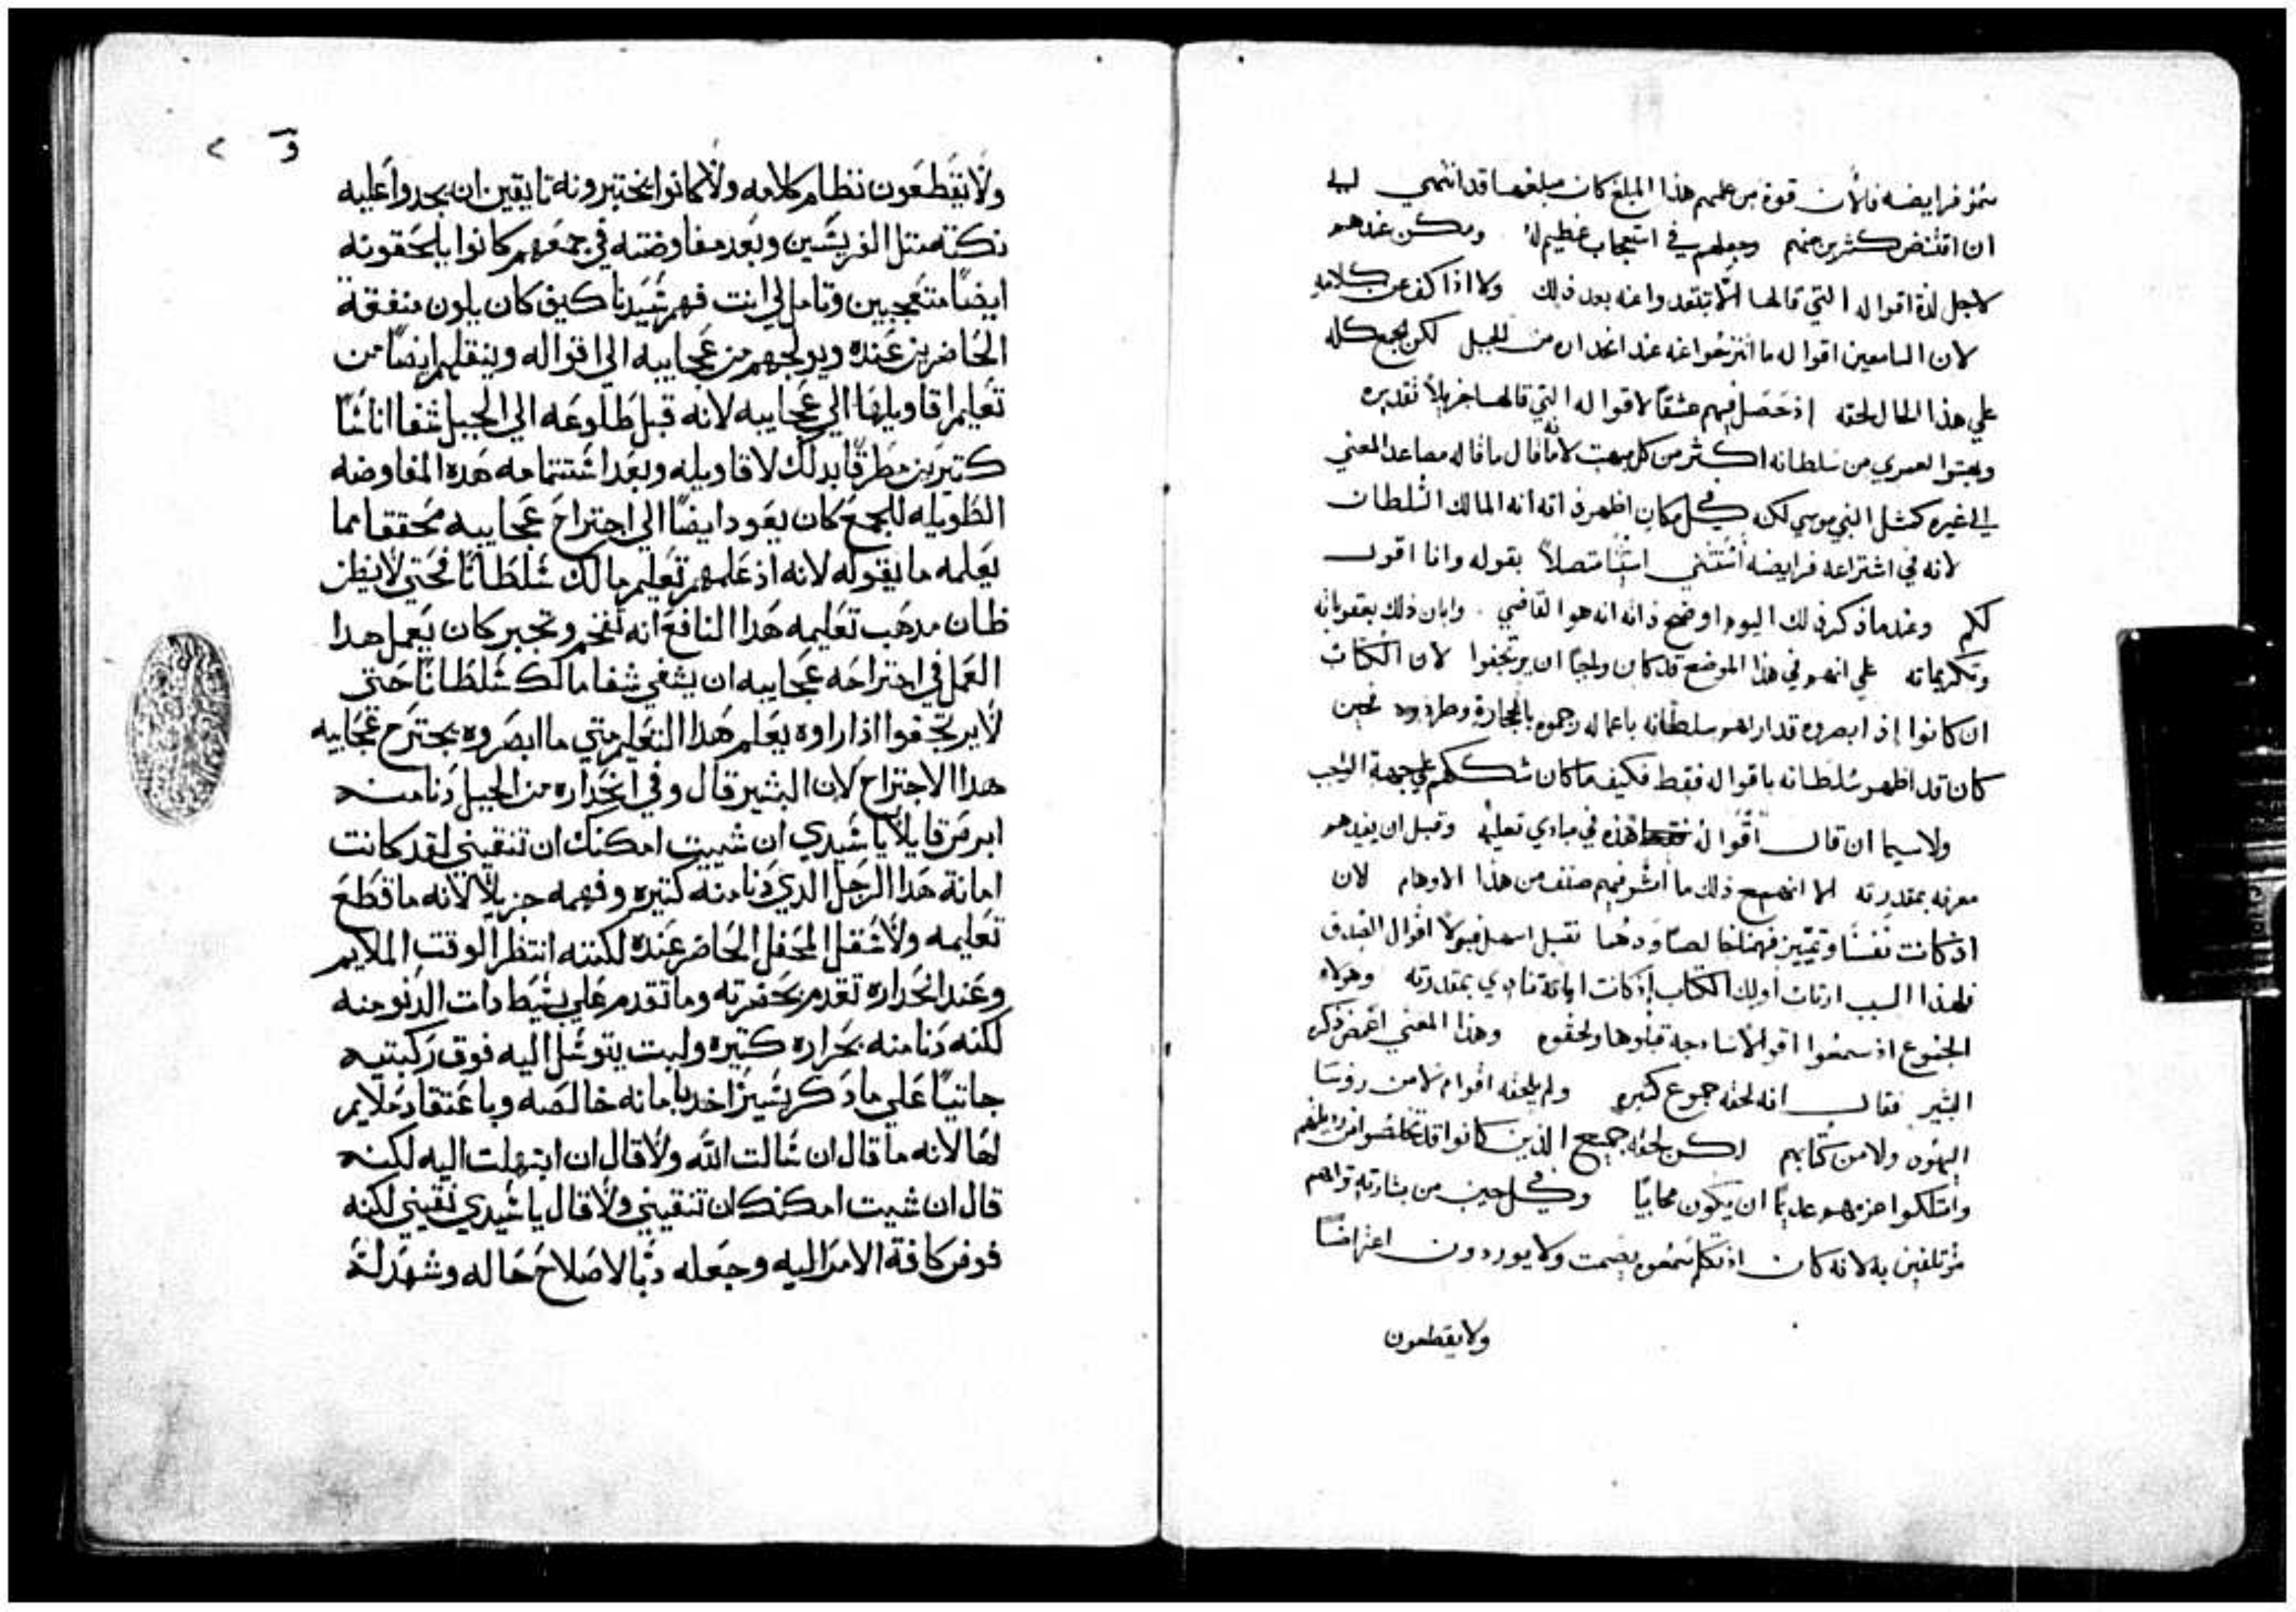 سمو فرايضه فلأن قوة من علمهم هذا المبلغ كان مبلغها قد انتهي الي
ان اقتنص كثيرين منهم وجعلهم في استعجاب عظيم له ومكن عندهم
لاجل لذة اقواله التي قالها الا يبتعدوا عنه بعد ذلك ولا اذا كف عن كلامه
لان السامعين اقواله ما انتزحوا عنه عند انحداره من الجبل لكن الجمع كله
علي هذا الحال لحقه اذ حصل فيهم عشقاً لاقواله التي قالها جزيلاً تقديره
وبهتوا لعمري من سلطانه اكثر من كل بهت لانه ما قال ما قاله مصاعد المعني
الي غيره كمثل النبي موسي لكنه في كل مكان اظهر ذاته انه المالك السلطان
لانه في اشتراعه فرايضه استثني استثنا متصلاً بقوله وانا اقول
لكم وعندما ذكر ذلك اليوم اوضح ذاته انه هو القاضي وابان ذلك بعقوباته
وتكريماته علي انهم في هذا الموضع قد كان واجباً ان يرتجفوا لان الكتاب
ان كانوا اذ ابصروه قد اراهم سلطانه باعماله رجموه بالحجارة وطردوه فحين
كان قد اظهر سلطانه باقواله فقط فكيف ما كان شككهم علي جهة الواجب
ولاسيما ان قال اقواله هذه في مبادي تعليمه وقبل ان يفيدهم
معرفه بمقدرته الا انهم مع ذلك ما اثر فيهم صنف من هذا الاوهام لان
اذ كانت نفسا وتمييز فهمنا خالصا ودهما تقبل اسهل قبولا اقوال الصدق
فلهذا السبب ارتاب اوليك الكتاب اذ كانت اياته تنادي بمقدرته وهولاء
الجموع اذ سمعوا اقوالا ساذجة قبلوها ولحقوه وهذا المعني اغمض ذكره
البشير فقال انه لحقه جموع كثيره ولم يلحقه اقوام لا من روسا
اليهود ولا من كتابهم لكن لحقه جميع الذين كانوا قد تخلصوا من رذيلتهم
وامتلكوا عزمهم عديماً ان يكون محابياً وفي كل حين من بشارته تراهم
مؤتلفين به لانه كان اذ تكلم سمعوه بصمت ولا يوردون اعتراضاً
ولا يقطعون
و ٢
ولا يقطعون نظام كلامه ولا كانوا يختبرونه تايقين ان يجدوا عليه
نكتة متل الفريسين وبعد مفاوضته في جمعهم كانوا يلحقونه
ايضاً متعجبين وتامل لي انت فهم سيدنا كيف كان يلون منفعة
الحاضرين عنده ويولجهم من عجايبه الي اقواله وينقلهم ايضاً من
تعليم اقاويلها الي عجايبه لانه قبل طلوعه الي الجبل شفا اناساً
كتيرين مطرقاً بدلك لاقاويله وبعد استتمامه هده المفاوضه
الطويله للجمع كان يعود ايضاً الي اجتراح عجايبه محققا بما
يعلمه ما يقوله لانه اد علمهم تعليم مالك سلطاناً فحتي لا يظن
ظان مدهب تعليمه هدا النافع انه تفخم وتجبر كان يعمل هدا
العمل في اجتراحه عجايبه ان يشفي شفا مالك سلطاناً حتي
لا يرتجفوا ادا راوه يعلم هدا التعليم متي ما ابصروه يجترح عجايبه
هدا الاجتراح لان البشير قال وفي انحداره من الجبل دنا منه
ابرص قايلاً يا سيدي ان شييت امكنك ان تنقيني لقد كانت
امانة هدا الرجل الدي دنا منه كتيره وفهمه جزيلاً لانه ما قطع
تعليمه ولا شقل المحفل الحاضر عنده لكنه انتظر الوقت الملايم
وعند انحداره تقدم بحضرته وما تقدم علي بسيط دات الدنو منه
لكنه دنا منه بحراره كتيره ولبت يتوسل اليه فوق ركبتيه
جاتياً علي ما دكر بشير اخر بامانه خالصه وباعتقاد ملايم
لها لانه ما قال ان سالت الله ولا قال ان ابتهلت اليه لكنه
قال ان شيت امكنك ان تنقيني ولا قال يا سيدي نقيني لكنه
فوض كافة الامر اليه وجعله رباً لاصلاح حاله وشهد له